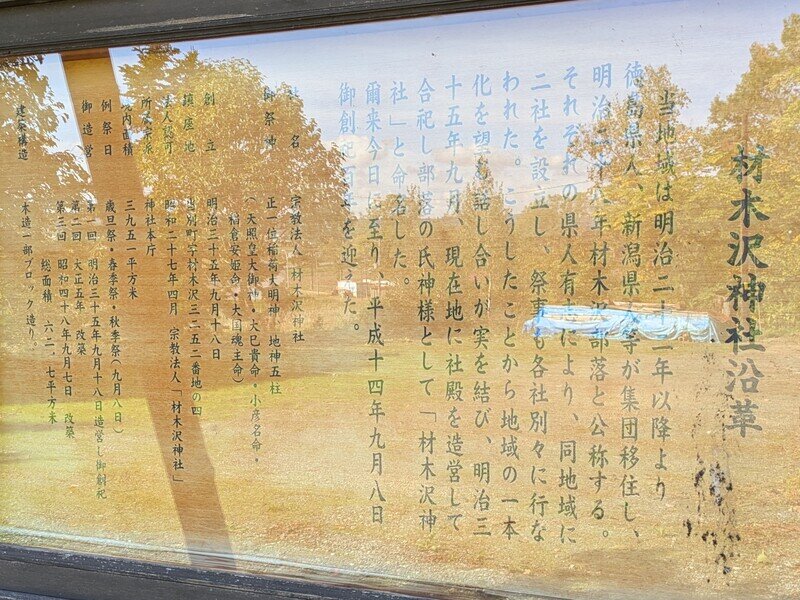 材木沢神社沿革
当地域は明治二十二年以降より
徳島県人、新潟県人等が集団移住し、
明治二十九年材木沢部落と公称する。
それぞれの県人有志により、同地域に
二社を設立し、祭事も各社別々に行な
われた。こうしたことから地域の一本
化を望む話し合いが実を結び、明治三
十五年九月、現在地に社殿を造営して
合祀し部落の氏神様として「材木沢神
社」と命名した。
爾来今日に至り、平成十四年九月八日
御創祀百年を迎えた。
社名 宗教法人 材木沢神社
御祭神 正一位稲荷大明神 地神五柱
(天照皇大御神・大己貴命・小彦名命・
稲倉安姫命・大国魂主命)
創立 明治三十五年九月十八日
鎮座地 当別町字材木沢三二五二番地の四
法人認可 昭和二十七年四月 宗教法人「材木沢神社」
所属宗派 神社本庁
境内面積 三九五一平方米
例祭日 歳旦祭・春季祭・秋季祭(九月八日)
御造営 第一回 明治三十五年九月十八日造営し御創祀
第二回 大正五年 改築
第三回 昭和四十八年九月七日 改築
総面積 六二、七平方米
建築構造 木造一部ブロック造り。